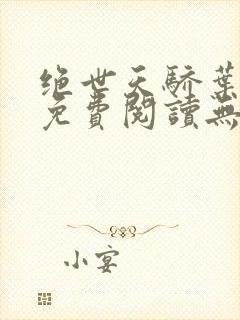 绝世天骄葉
免費閱讀無
小宴